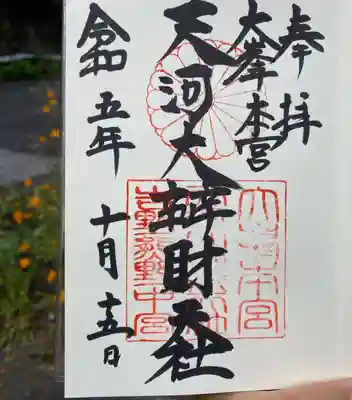 奉拝
大峯本宮
天河大辨財天社
令和五年 十月十五日
大峯本宮
吉野熊野中宮